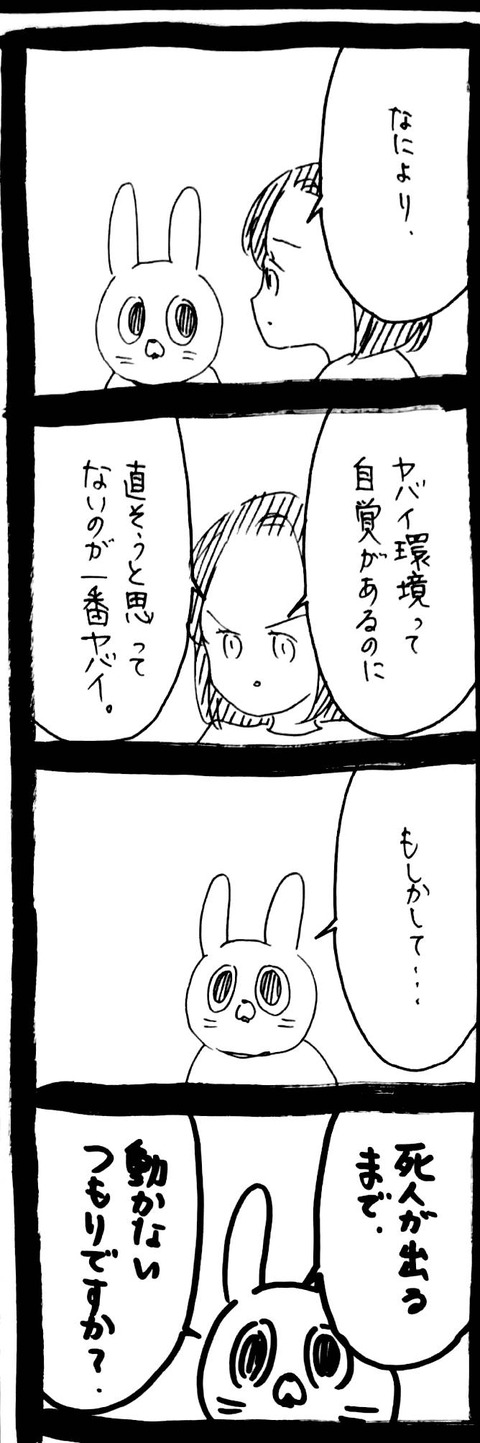 なにより、
ヤバイ環境って
自覚があるのに
直そうと思って
ないのが一番ヤバイ。
もしかして・・・
死人が出る
まで、
動かない
つもりですか?